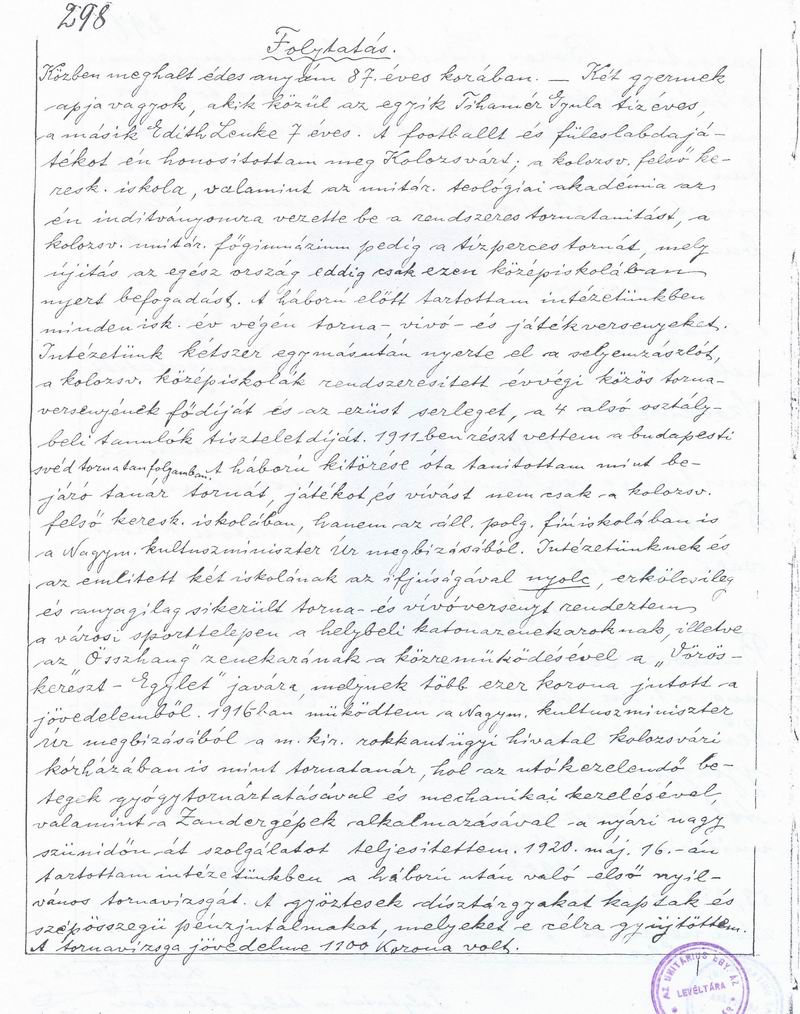 298
Folytatás.
Közben meghalt édes anyám 87. éves korában. — Két gyermek
apja vagyok, akik közül az egyik Tihamér Gyula tiz éves,
a másik Edith Lenke 7 éves. A footballt és füleslabdajá-
tékot én honositottam meg Kolozsvárt; a kolozsv. felső ke-
resk. iskola, valamint az unitár. teológiai akadémia az
én inditványomra vezette be a rendszeres tornatanitást, a
kolozsv. unitár. főgimnázium pedig a tizperces tornát, mely
újitás az egész ország eddig csak ezen középiskolában
nyert befogadást. A háború előtt tartottam intézetünkben
minden isk. év végén torna-, vivó- és játékversenyeket.
Intézetünk kétszer egymásután nyerte el a selyemzászlót,
a kolozsv. középiskolák rendszeresitett évvégi közös torna-
versenyének fődíját és az ezüst serleget, a 4 alsó osztály-
beli tanulók tiszteletdíját. 1911 ben részt vettem a budapesti
svéd tornatanfolyamban. A háború kitörése óta tanitottam mint be-
járó tanár tornát, játékot és vívást nem csak a kolozsv.
felső keresk. iskolában, hanem az áll. polg. fiúiskolában is
a Nagym. kultuszminiszter Úr megbizásából. Intézetünknek és
az emlitett két iskolának az ifjúságával nyolc, erkölcsileg
és anyagilag sikerült torna- és vívóversenyt rendeztem
a városi sporttelepen a helybeli katonazenekaroknak, illetve
az „Összhang" zenekarának a közreműködésével a „Vörös-
kereszt - Egylet" javára, melynek több ezer korona jutott a
jövedelemből. 1916-ban működtem a Nagym. kultuszminiszter
Úr megbizásából a m. kir. rokkantügyi hivatal kolozsvári
kórházában is mint tornatanár, hol az utókezelendő be-
tegek gyógytornáztatásával és mechanikai kezelésével,
valamint a Zandergépek alkalmazásával a nyári nagy
szünidőn át szolgálatot teljesitettem. 1920. máj. 16.-án
tartottam intézetünkben a háború után való első nyil-
vános tornavizsgát. A győztesek disztárgyakat kaptak és
szépösszegü pénzjutalmakat, melyeket e célra gyüjtöttem.
A tornavizsga jövedelme 1100 Korona volt.
AZ UNITÁRIUS EGYHÁZ
LEVÉLTÁRA